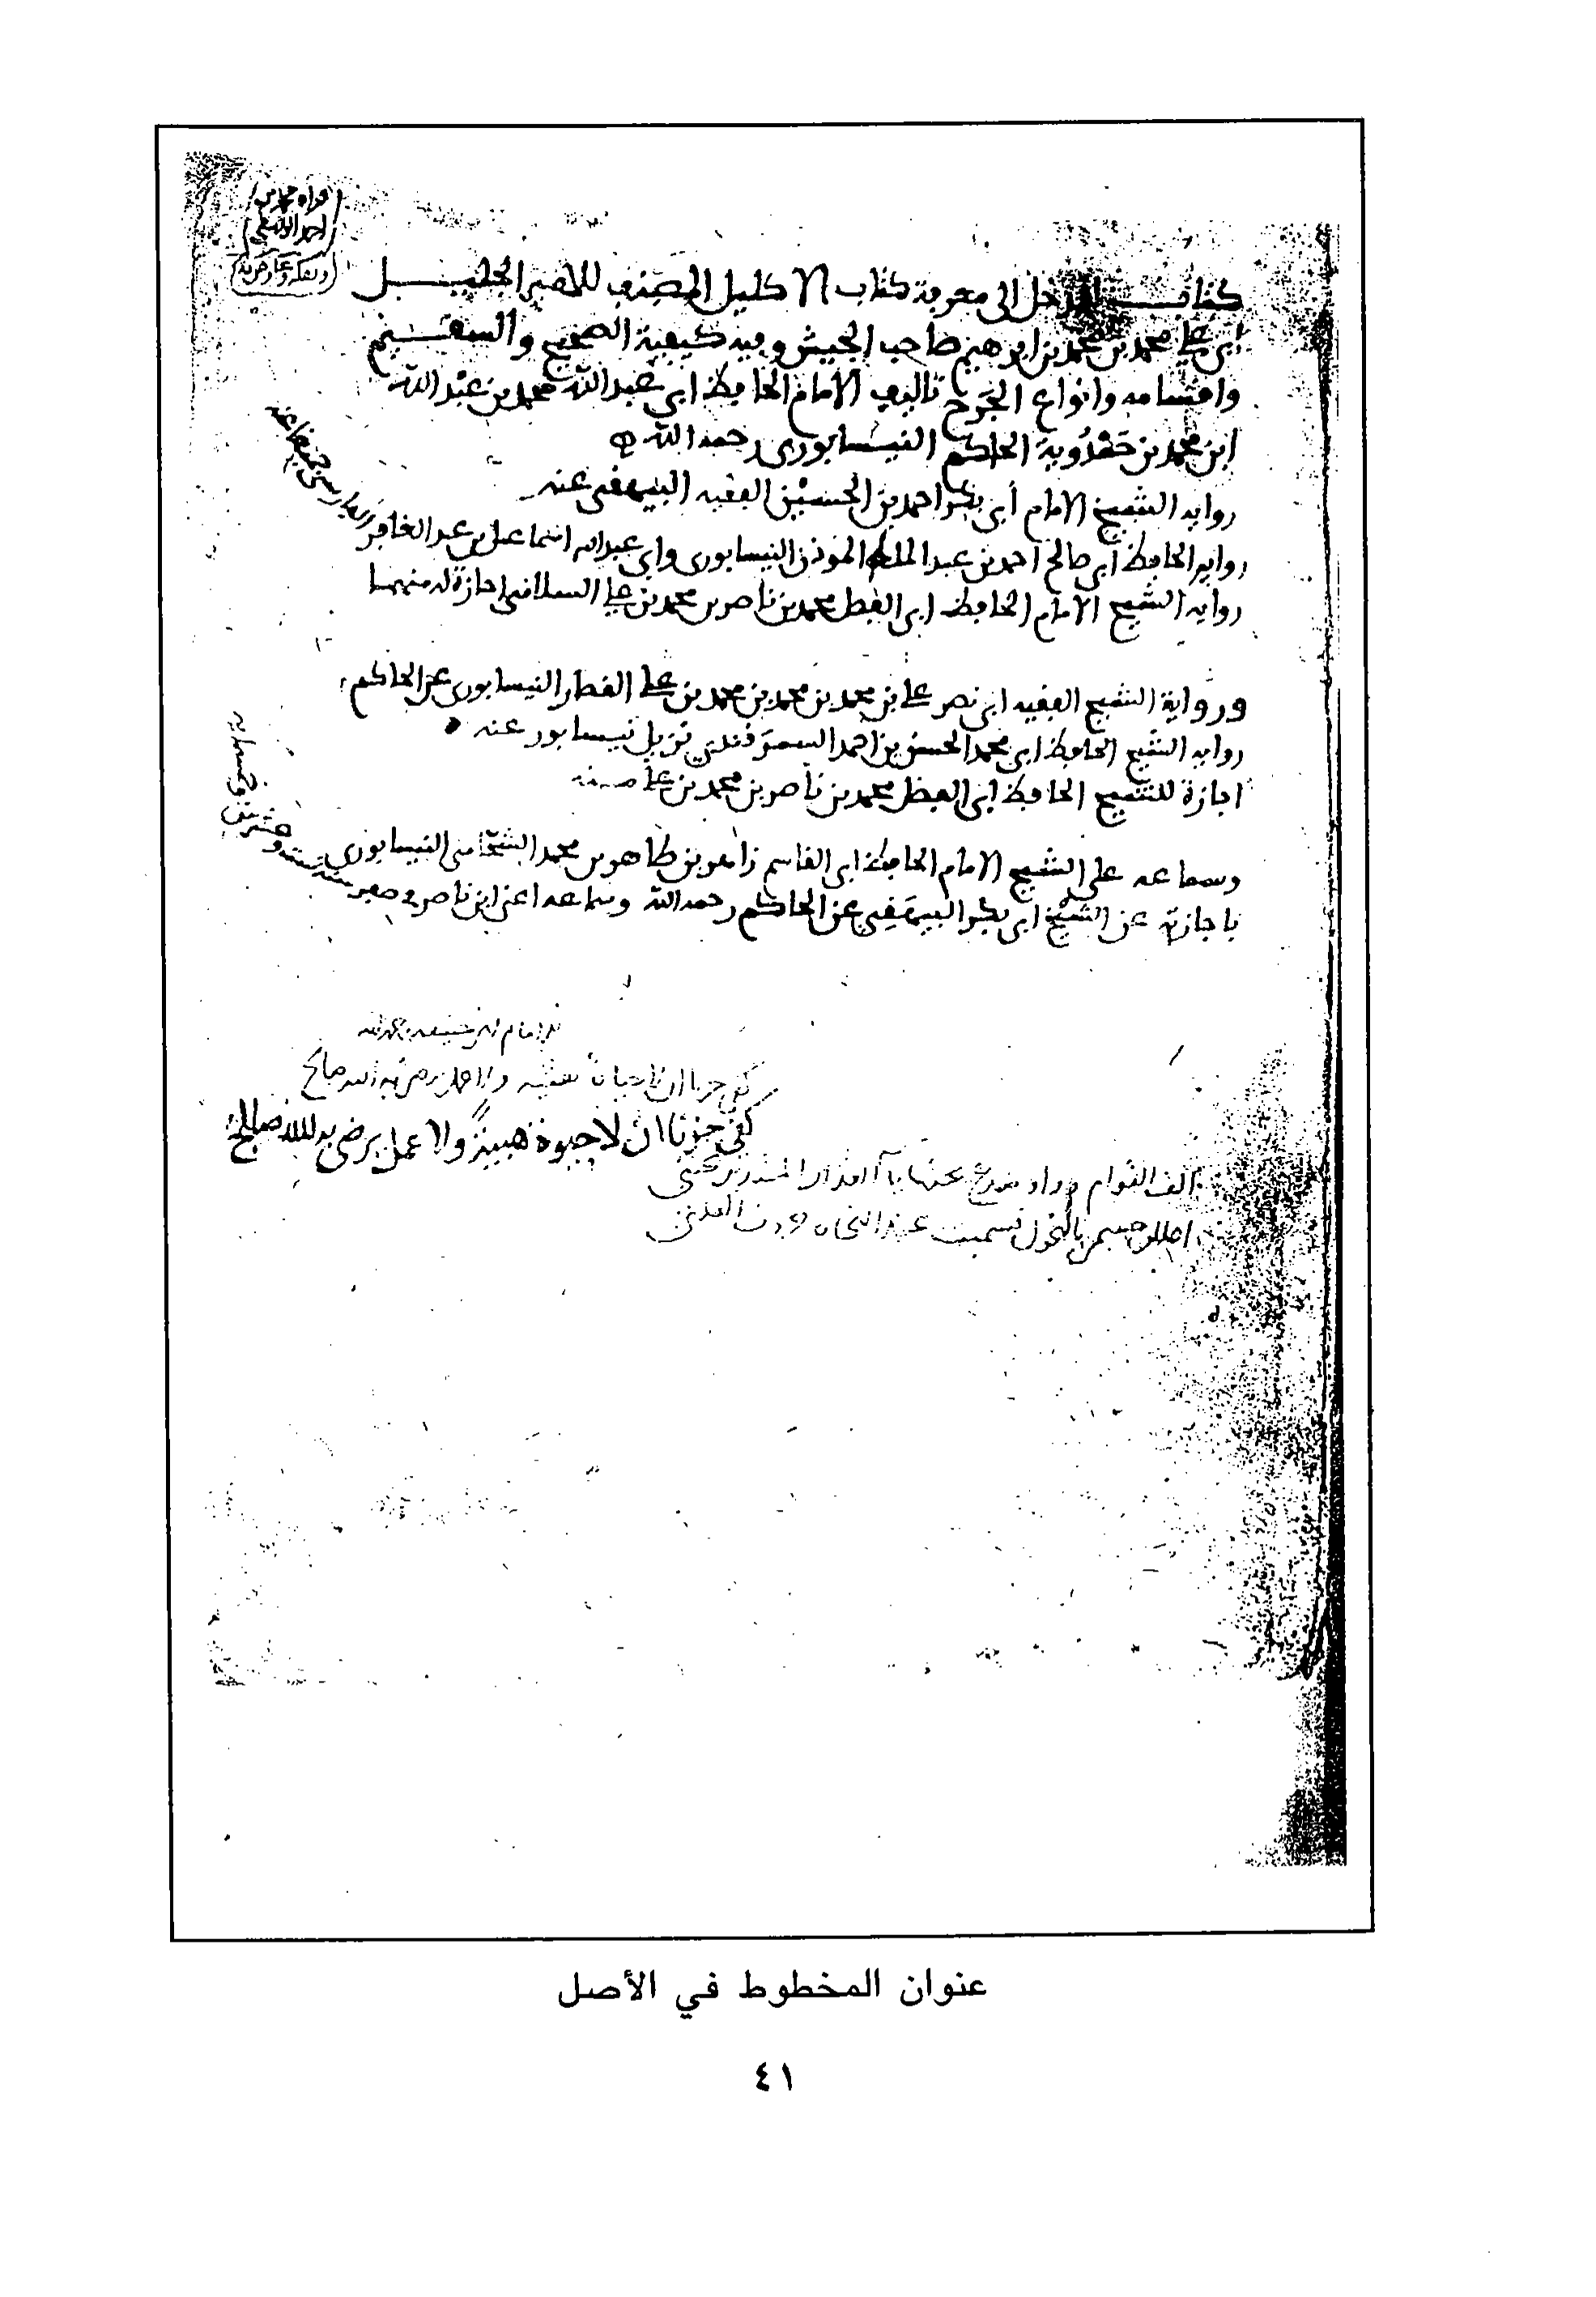 قراه محمد بن
احمد
كتاب المدخل الى معرفة كتاب الاكليل المصنف للامير الجليل
ابي علي محمد بن محمد بن ابرهيم صاحب الجيش وفيه كيفية الصحيح والسقيم
واقسامه وانواع الجرح تاليف الامام الحافظ ابي عبد الله محمد بن عبد الله
ابن محمد بن حمدوية الحاكم النيسابوري رحمه الله
رواية الشيخ الامام أبي بكر احمد بن الحسين الفقيه البيهقي عنه
رواية الحافظ ابي صالح احمد بن عبد الملك المؤذن النيسابوري وابي عبد الله اسماعيل بن عبد الغافر الفارسي جميعا عنه
رواية الشيخ الامام الحافظ ابي الفضل محمد بن ناصر بن محمد بن علي السلامي اجازة له منهما
ورواية الشيخ الفقيه ابي نصر علي بن محمد بن محمد بن محمد بن علي القطار النيسابوري عن الحاكم
رواية الشيخ الحافظ ابي محمد الحسن بن احمد السمرقندي نزيل نيسابور عنه
اجازة للشيخ الحافظ ابي الفضل محمد بن ناصر بن محمد بن علي منه
وسماعه على الشيخ الامام الحافظ ابي القاسم زاهر بن طاهر بن محمد الشحامي النيسابوري
باجازته عن الشيخ ابي بكر البيهقي عن الحاكم رحمه الله وسماعه اعني ابن ناصر في صفر سنة ست وعشرين وخمسمايه
كفى حزنا ان لا حيوة هنية ولا عمل يرضى به الله صالح
كفى حزنا ان لا حيوة هنيةً ولا عمل يرضى به الله صالح
الف القوام
عنوان المخطوط في الأصل
٤١